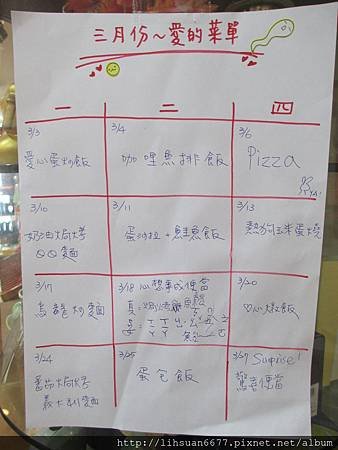 三月份~愛的菜單
一 二 四
3/3
愛心蛋炒飯
3/4
咖哩魚排飯
3/6
Pizza
3/10
奶油焗烤
QQ麵
3/11
蛋沙拉+鮭魚飯
3/13
熱狗玉米蛋燒
3/17
烏龍炒麵
3/18 心想事成便當
3/20
心燉飯
3/24
蕃茄焗烤
義大利麵
3/25
蛋包飯
3/27 Surprise!
驚喜便當
http://lihsuan6677.pixnet.net/album